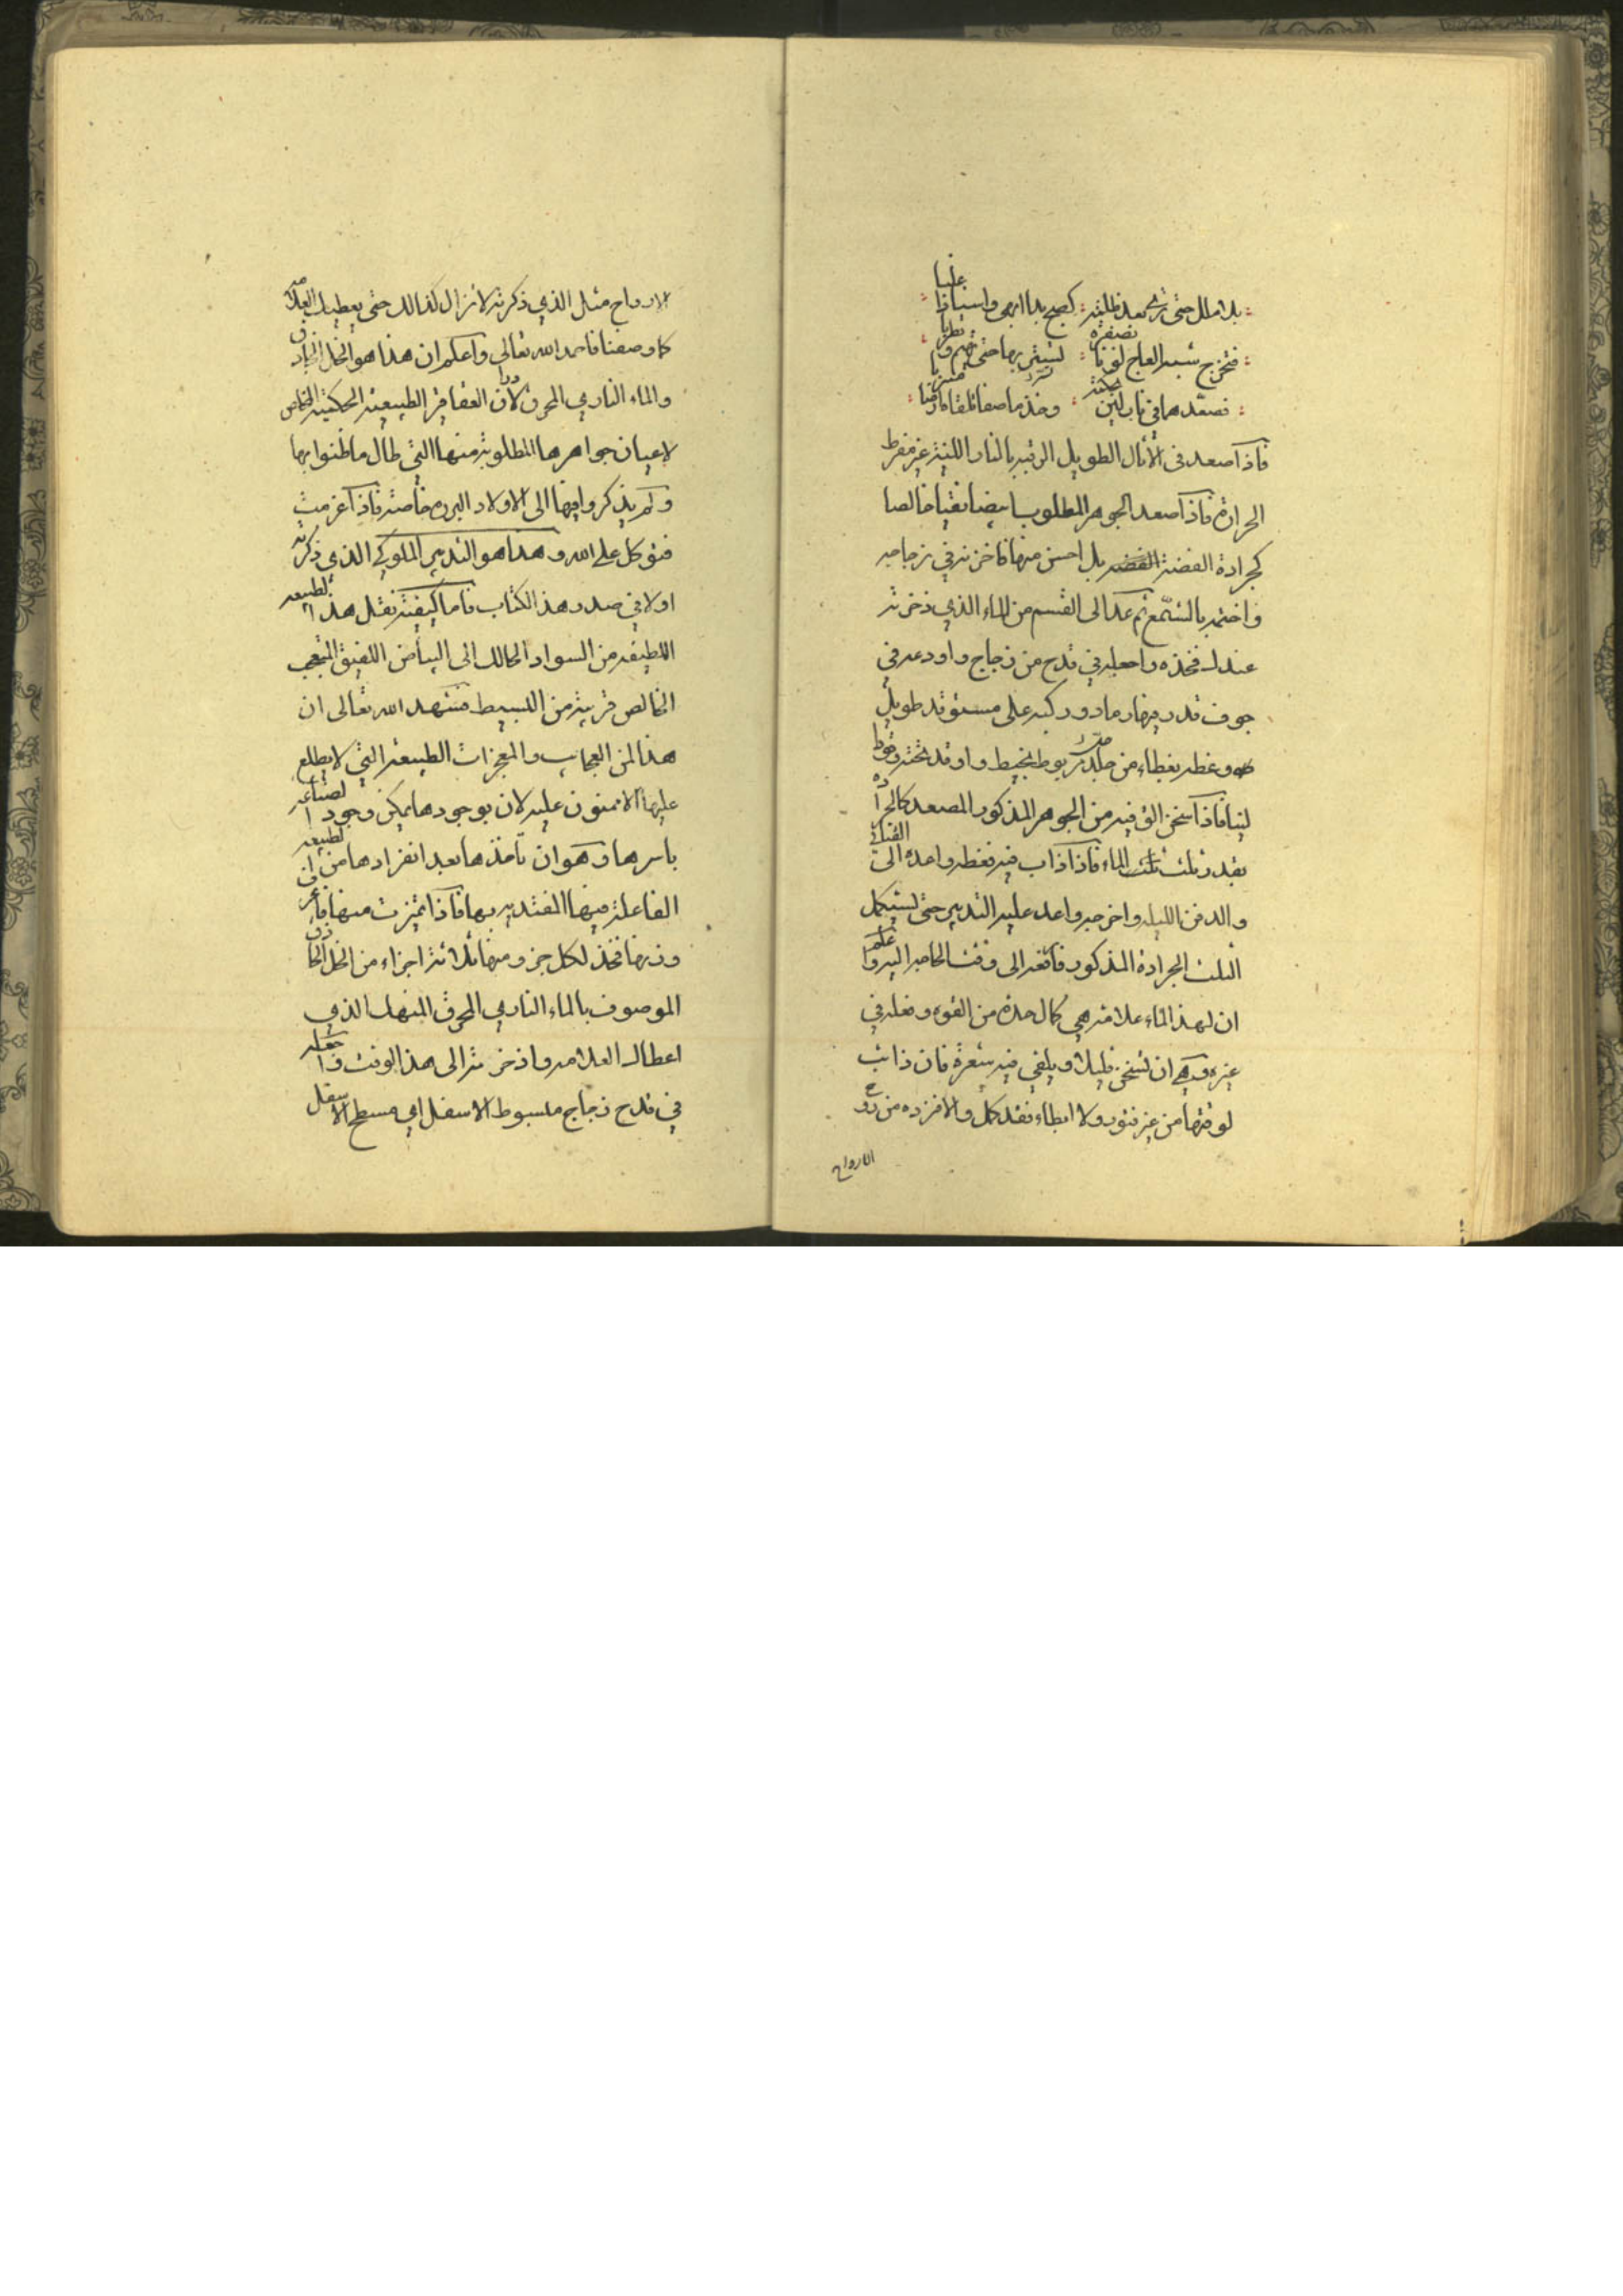 بلا ملل حتى ترى بعد ظلمة كصبح بدا ابهى واسنا ضيا
فتخرج شبه العاج لونا بصفرة
فصعدهما في ناب لين وخذ ما صفا
فاذا صعد في الأثال الطويل الرقبه بالنار اللينة غير مفرط
الحرارة فاذا صعد الجوهر المطلوب ابيضا نقيا خالصا
كجرادة الفضة بل احسن منها فاخزنه في زجاجه
واختمه بالشمع ثم عد الى القسم من الماء الذي ذخرته
عندك فخذه واجعله في قدح من زجاج واودعه في
جوف قدر فيها رماد وركبه على مستوقد طويل
وغطه بغطاء من جلد مربوط بخيط واوقد تحته وقودا
لينا فاذا سخن الق فيه من الجوهر المذكور المصعد كالجرادة
بقدر ثلث الماء فاذا ذاب فيه فغطه واعده الى
والدفن الليله واخرجه واعد عليه التدبير حتى يستكمل
الثلث الجرادة المذكور فارفعه الى وقت الحاجه اليه واعلم
ان لهذا الماء علامة هي كمال حده من القوه وفعله في
غيره وهي ان تسخن قليلا ويلقي فيه شعرة فان ذابت
لوقتها من غير فتور ولا ابطاء فقد كمل والا فزده من روح
الارواح
الارواح مثل الذي ذكرته لا تزال كذالك حتى يعطيك العلامه
كما وصفنا فاحمد الله تعالى واعلم ان هذا هو الخل الحاذق
والماء الناري المحرق لادران العقاقير الطبيعية الحكمية الخاص
لاعيان جواهرها المطلوبة منها التي طال ما ظنوا بها
ولم يذكروا فيها الى الاولاد البرره خاصة فاذا عزمت
فتوكل على الله وهذا هو التدبير الملوكي الذي ذكرته
اولا في صدر هذ الكتاب فاما كيفية نقل هذا الطبيعه
اللطيفه من السواد الحالك الى البياض اللفيق المتعجب
الخالص قريبة من البسيط فنشهد الله تعالى ان
هذا لمن العجايب والمعجزات الطبيعة التي لا يطلع
عليها الا ممنون عليه لان بوجودها يمكن وجود الصناعه
باسرها وهو ان تأخذها بعد انفرادها من الطبيعه
الفاعلة فيها المفتديه بها فاذا تميزت منها فاعرف
وزنها فخذ لكل جزو منها ثلاثة اجزاء من الخل الحاذق
الموصوف بالماء الناري المحرق المنهك الذي
اعطاك العلامه واذخرته الى هذ الوقت واجعله
في قدح زجاج مبسوط الاسفل اي مسطح الاسفل